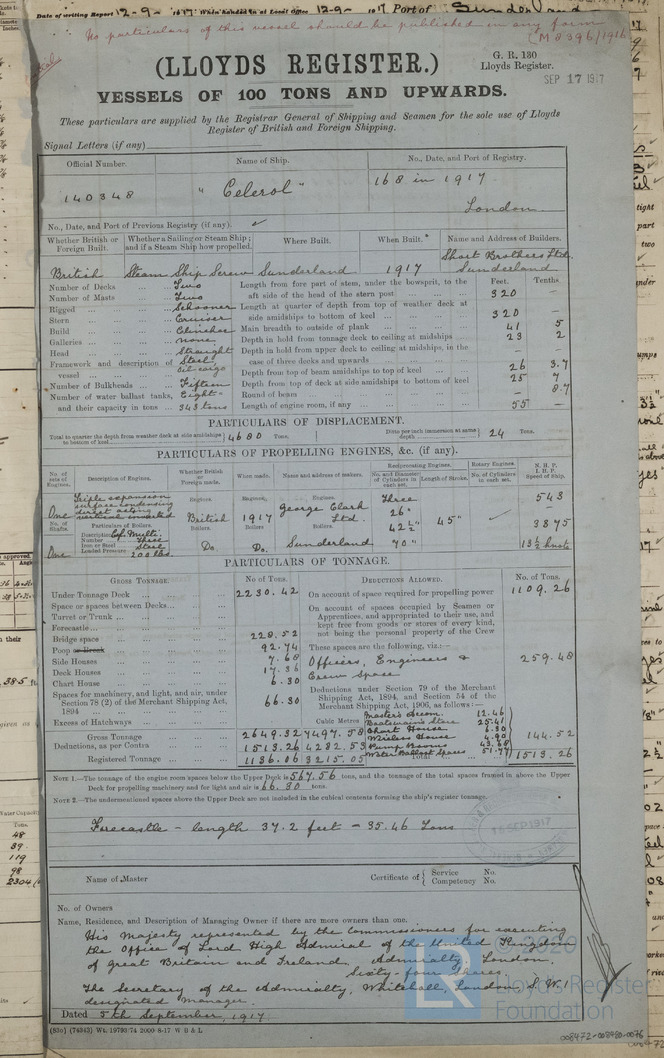 Date of writing Report 12-9-1917 When handed in at Local Office 12-9-1917 Port of Sunderland
No particulars of this vessel should be published in any form
(M 8396/1916
(LLOYDS REGISTER.)
G. R. 130
Lloyds Register.
SEP 17 1917
VESSELS OF 100 TONS AND UPWARDS.
These particulars are supplied by the Registrar General of Shipping and Seamen for the sole use of Lloyds
Register of British and Foreign Shipping.
Signal Letters (if any)
Official Number. Name of Ship. No., Date, and Port of Registry.
140348 "Celerol" 168 in 1917
London
No., Date, and Port of Previous Registry (if any).
Whether British or Foreign Built. Whether a Sailing or Steam Ship; and if a Steam Ship how propelled. Where Built. When Built. Name and Address of Builders.
British Steam Ship Screw Sunderland 1917 Short Brothers Ltd. Sunderland
Number of Decks Two Length from fore part of stem, under the bowsprit, to the Feet. Tenths.
Number of Masts Two aft side of the head of the stern post 320 —
Rigged Schooner Length at quarter of depth from top of weather deck at
Stern Cruiser side amidships to bottom of keel 320 —
Build Clincher Main breadth to outside of plank 41 5
Galleries none Depth in hold from tonnage deck to ceiling at midships 23 2
Head Straight Depth in hold from upper deck to ceiling at midships, in the
Framework and description of vessel Steel oil cargo case of three decks and upwards — —
Depth from top of beam amidships to top of keel 26 3.7
Number of Bulkheads Fifteen Depth from top of deck at side amidships to bottom of keel 25 7
Number of water ballast tanks, Eight Round of beam — 8.7
and their capacity in tons 343 tons Length of engine room, if any 55
PARTICULARS OF DISPLACEMENT.
Total to quarter the depth from weather deck at side amidships to bottom of keel 4680 Tons. Ditto per inch immersion at same depth 24 Tons.
PARTICULARS OF PROPELLING ENGINES, &c. (if any).
No. of sets of Engines. Description of Engines. Whether British or Foreign made. When made. Name and address of makers. Reciprocating Engines. Rotary Engines. N. H. P.
No. and Diameter of Cylinders in each set. Length of Stroke. No. of Cylinders in each set. I. H. P. Speed of Ship.
One Triple expansion surface condensing direct acting vertical inverted Engines. British Engines. 1917 Engines. George Clark Ltd. Three 26" 42½" 70" 45" — 543
3875
13½ knots
No. of Shafts. Particulars of Boilers.
One Description Cyl. Multi. Boilers Boilers Boilers
Number Three
Iron or Steel Steel Do. Do. Sunderland
Loaded Pressure 200 lbs.
PARTICULARS OF TONNAGE.
GROSS TONNAGE. No. of Tons. DEDUCTIONS ALLOWED. No. of Tons.
Under Tonnage Deck 2230.42 On account of space required for propelling power 1109.26
Space or spaces between Decks On account of spaces occupied by Seamen or
Turret or Trunk Apprentices, and appropriated to their use, and
Forecastle kept free from goods or stores of every kind,
Bridge space 228.52 not being the personal property of the Crew
Poop or Break 92.74 These spaces are the following, viz.:—
Side Houses 7.68 Officers, Engineers & 259.48
Deck Houses 17.36 Crew Space
Chart House 6.30
Spaces for machinery, and light, and air, under Section 78 (2) of the Merchant Shipping Act, 1894 66.30 Deductions under Section 79 of the Merchant Shipping Act, 1894, and Section 54 of the Merchant Shipping Act, 1906, as follows:—
Excess of Hatchways Cubic Metres Master's Accom. 12.46
Boatswain's Store 25.41
Gross Tonnage 2649.32 7497.58 Chart House 6.30
Wireless House 4.90 144.52
Deductions, as per Contra 1513.26 4282.53 Pump Rooms 43.68
Water Ballast Spaces 51.77
Registered Tonnage 1136.06 3215.05 Total 1513.26
NOTE 1.—The tonnage of the engine room spaces below the Upper Deck is 567.56 tons, and the tonnage of the total spaces framed in above the Upper
Deck for propelling machinery and for light and air is 66.30 tons.
NOTE 2.—The undermentioned spaces above the Upper Deck are not included in the cubical contents forming the ship's register tonnage.
Forecastle – length 37.2 feet – 35.46 Tons
15 SEP 1917
Name of Master Certificate of { Service No.
Competency No.
No. of Owners
Name, Residence, and Description of Managing Owner if there are more owners than one.
His Majesty represented by the Commissioners for executing
the Office of Lord High Admiral of the United Kingdom
of Great Britain and Ireland. Admiralty, London,
Sixty-four Shares.
The Secretary of the Admiralty, Whitehall, London, S.W.1
designated manager.
Dated 5th September, 1917
(830) (74943) Wt. 19793/74 2000 8-17 W B & L
© 2020
LR Lloyd's Register
Foundation
008472-008980-0076